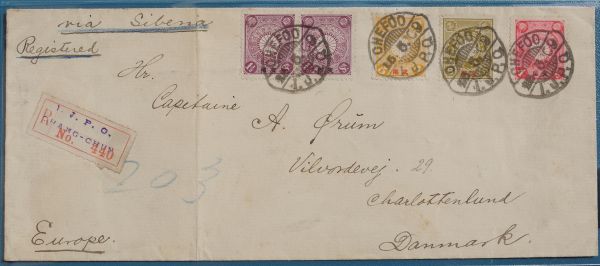 via Siberia
Registered
Hr.
Capitaine A. Ørum
Vilvordevej. 29.
Charlottenlund
Danmark.
Europe.
I. J. P. O.
R
No. 440
203
CHEFOO
I.J.P.O
CHEFOO
I.J.P.O
CHEFOO
I.J.P.O
CHEFOO
I.J.P.O